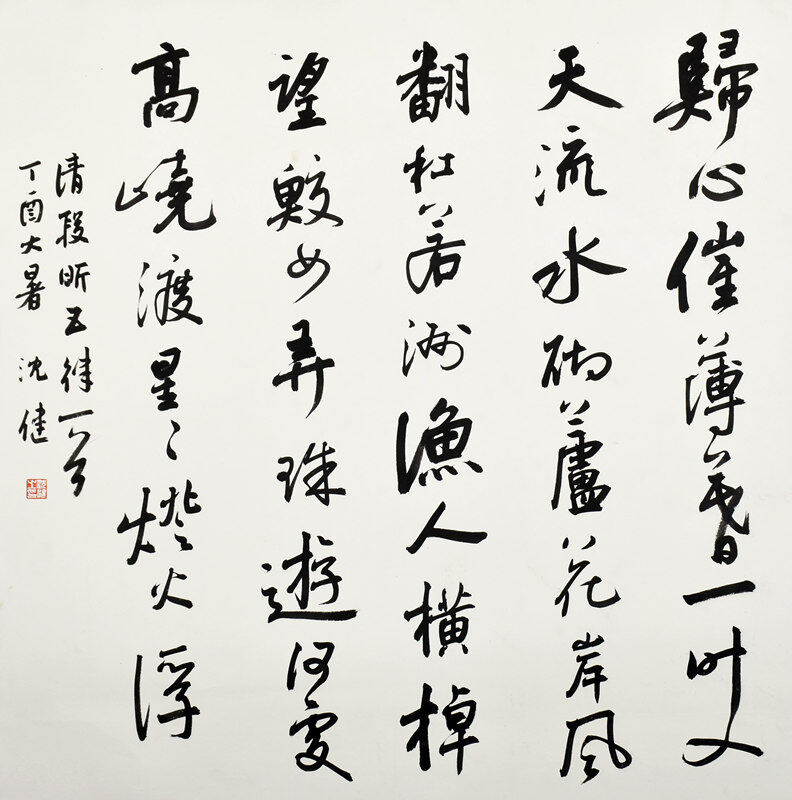 歸心催薄暮一叶入
天流水砌蘆花岸風
翻杜若洲漁人橫棹
望鮫女弄珠遊何處
高嶢渡星〻燈火浮
清段昕五律一首
丁酉大暑 沈健